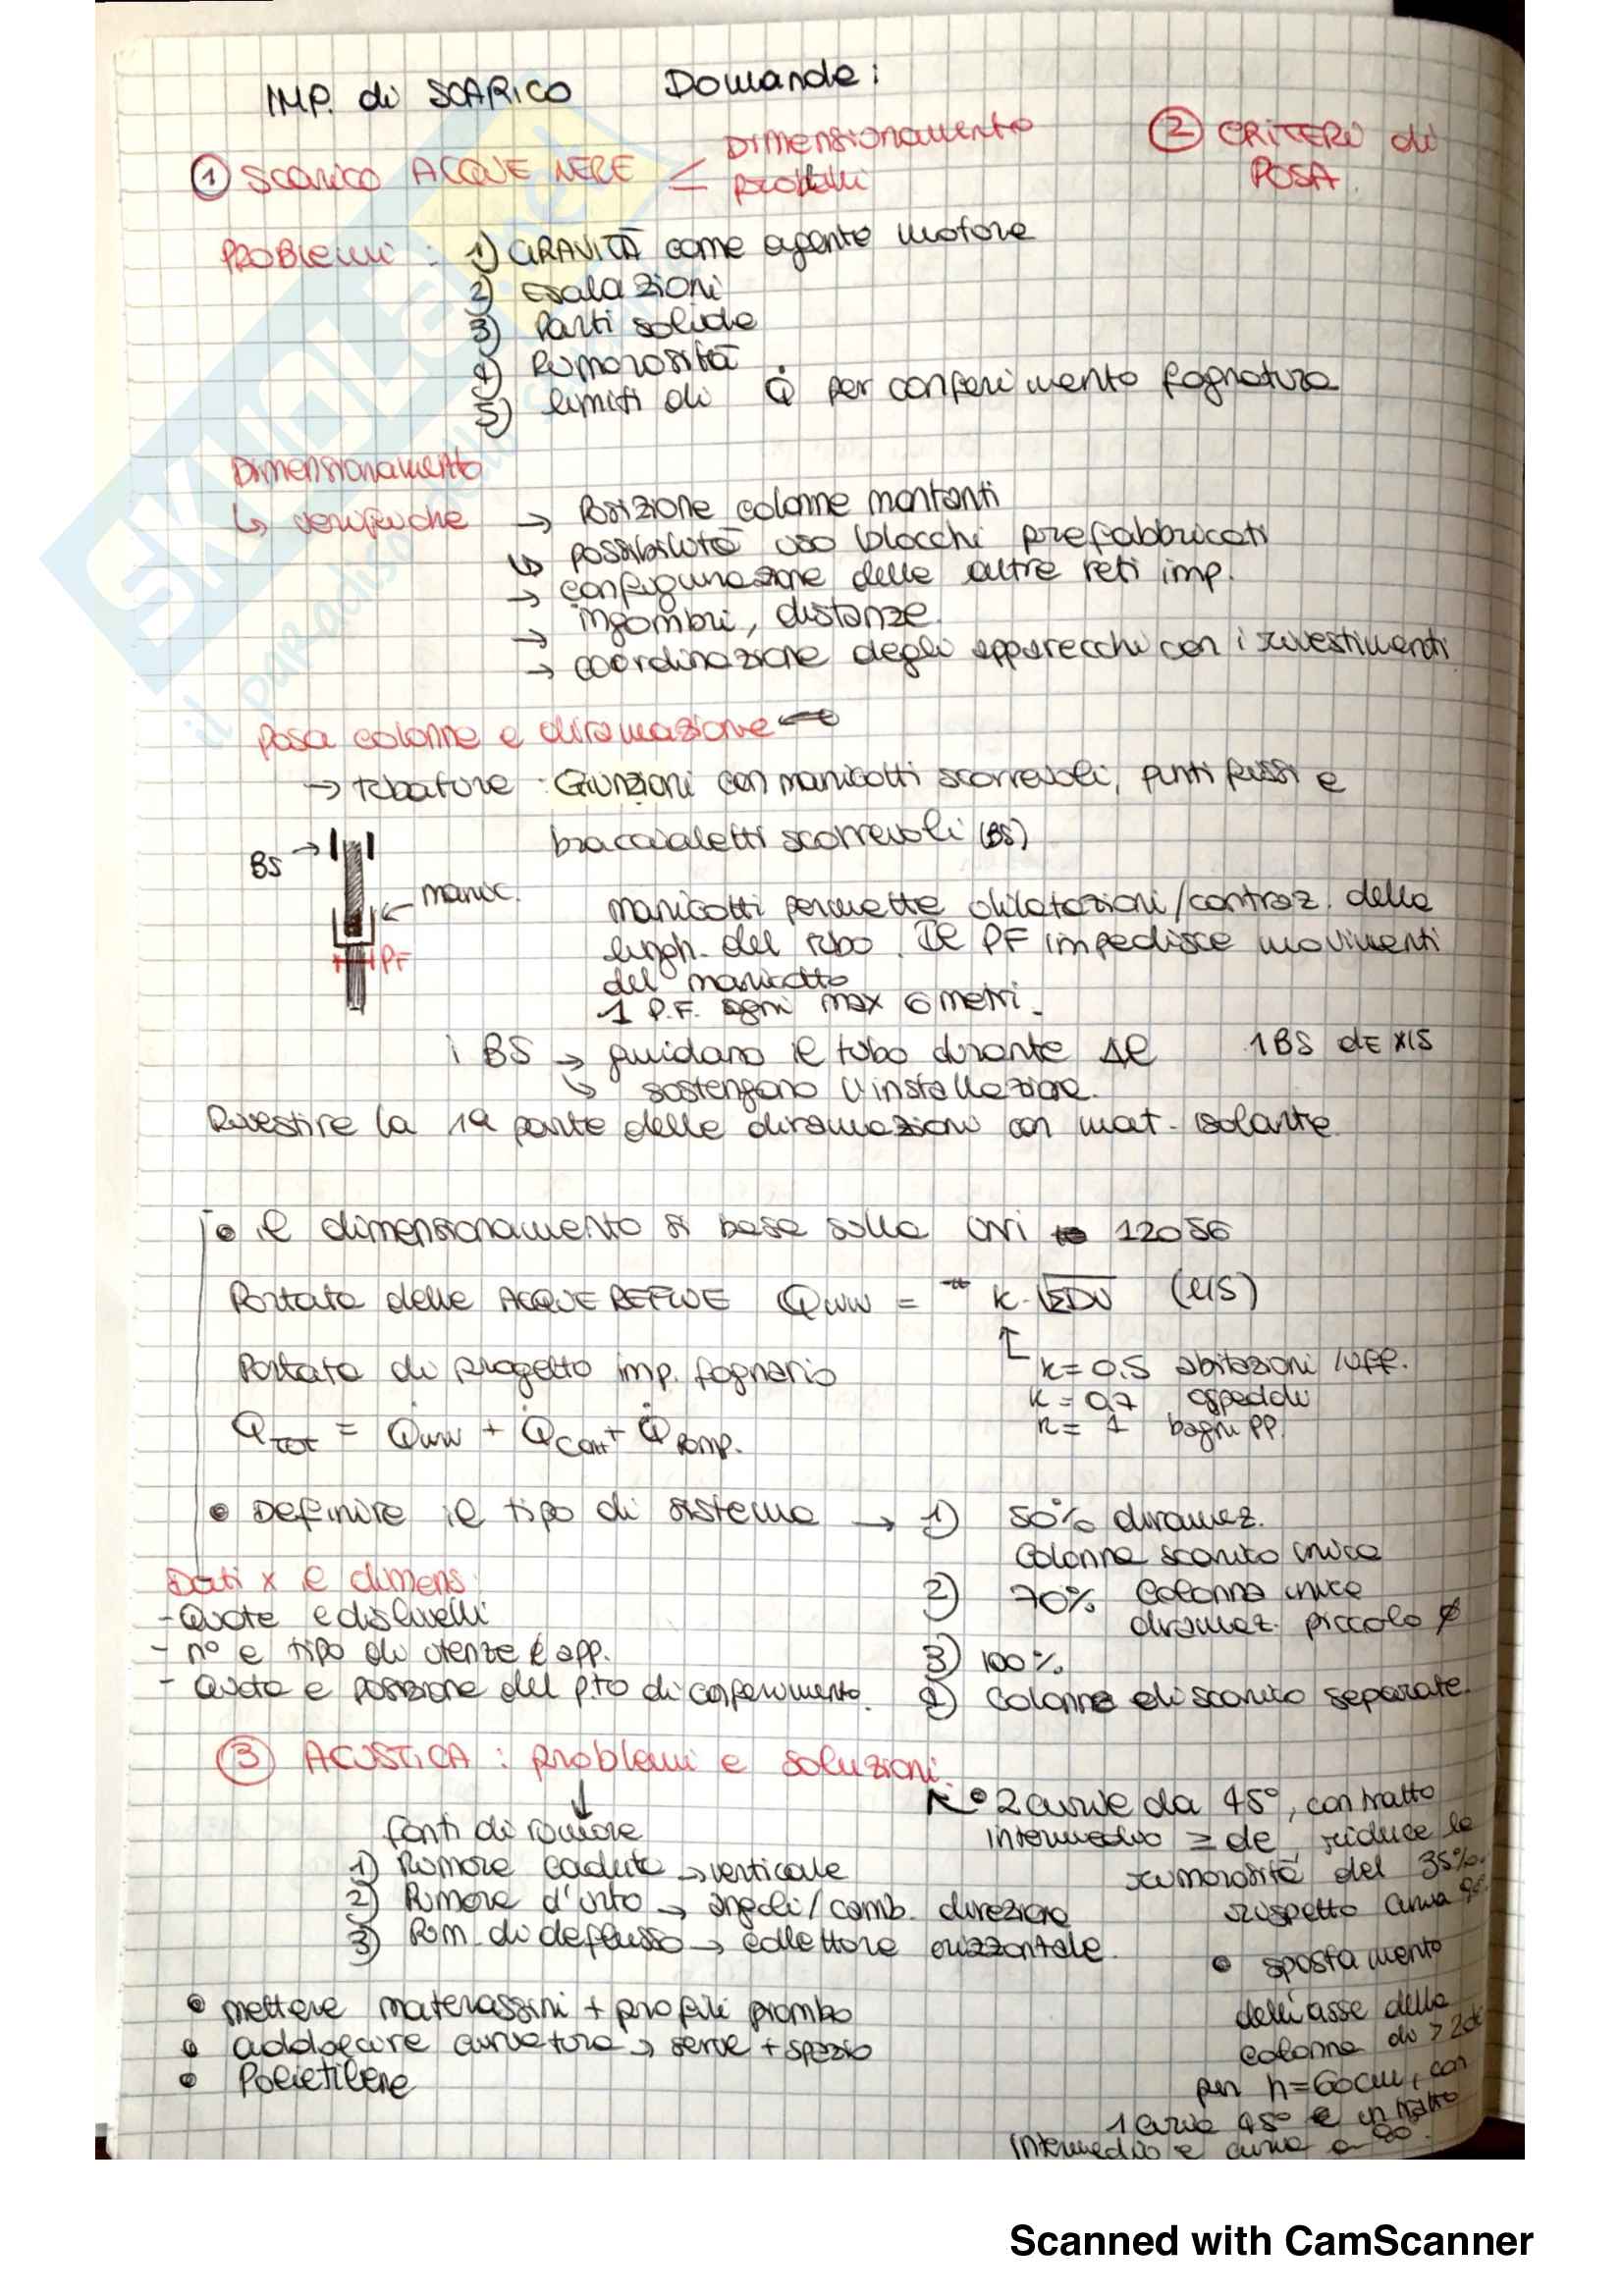 IMP. di SCARICO Domande:
① SCARICO ACQUE NERE < Dimensionamento
problemi
② CRITERI di
POSA
PROBLEMI : 1) GRAVITÀ come agente motore
2) Esalazioni
3) Parti solide
4) Rumorosità
5) limiti di Q̇ per conferimento fognatura
Dimensionamento
↳ verifiche → Posizione colonne montanti
↳ possibilità uso blocchi prefabbricati
→ configurazione delle altre reti imp.
→ ingombri, distanze
→ coordinazione degli apparecchi con i rivestimenti
Posa colonne e diramazione
→ tubature : Giunzioni con manicotti scorrevoli, punti fissi e
braccialetti scorrevoli (BS)
BS →
← manic.
PF
manicotti permette dilatazioni/contraz. della
lungh. del tubo. Il PF impedisce movimenti
del manicotto
1 P.F. ogni max 6 metri.
i BS → guidano il tubo durante Δl 1BS dE x15
↳ sostengono l'installazione.
Rivestire la 1a parte delle diramazioni con mat. isolante
• il dimensionamento si basa sulla UNI 12056
Portata delle ACQUE REFLUE Qww = k·√ΣDU (l/s)
k=0,5 abitazioni/uff.
k=0,7 ospedali
k= 1 bagni PP.
Portata di progetto imp. fognario
Q̇tot = Q̇ww + Q̇cont + Q̇pomp.
• Definire il tipo di sistema → 1) 50% diramaz.
colonna scarico unica
2) 70% colonna unica
diramaz. piccolo ø
3) 100%
4) colonne di scarico separate.
Dati x il dimens:
- Quote e dislivelli
- n° e tipo di utenze e app.
- Quota e posizione del p.to di conferimento.
③ ACUSTICA : problemi e soluzioni.
fonti di rumore
1) Rumore caduta → verticale
2) Rumore d'urto → angoli/camb. direzione
3) Rum. di deflusso → collettore orizzontale
• mettere materassini + profili piombo
• addolcire curvatura → serve + spazio
• Polietilene
• 2 curve da 45°, con tratto
intermedio ≥ de, riduce la
rumorosità del 35%
rispetto curva 90°
• spostamento
dell'asse della
colonna di > 2de
per h=60cm, con
1 curva 45° e un tratto
intermedio e curva a 90°.
Scanned with CamScanner
SKUOLA.net
il paradiso dello